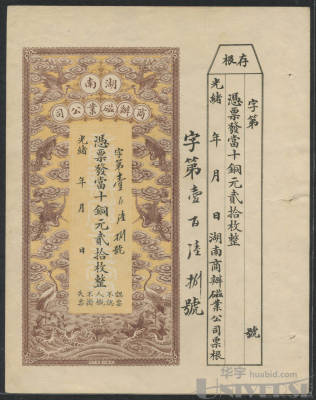 存根
字第　　　號
憑票發當十銅元貳拾枚整
光緒　年　月　日湖南商辦磁業公司票根
字第壹百陸捌號
湖南
商辦磁業公司
字第壹百陸捌號
憑票發當十銅元貳拾枚整
光緒　年　月　日
認票不認人
失票不掛
华宇 huabid.com
UNIVERSE